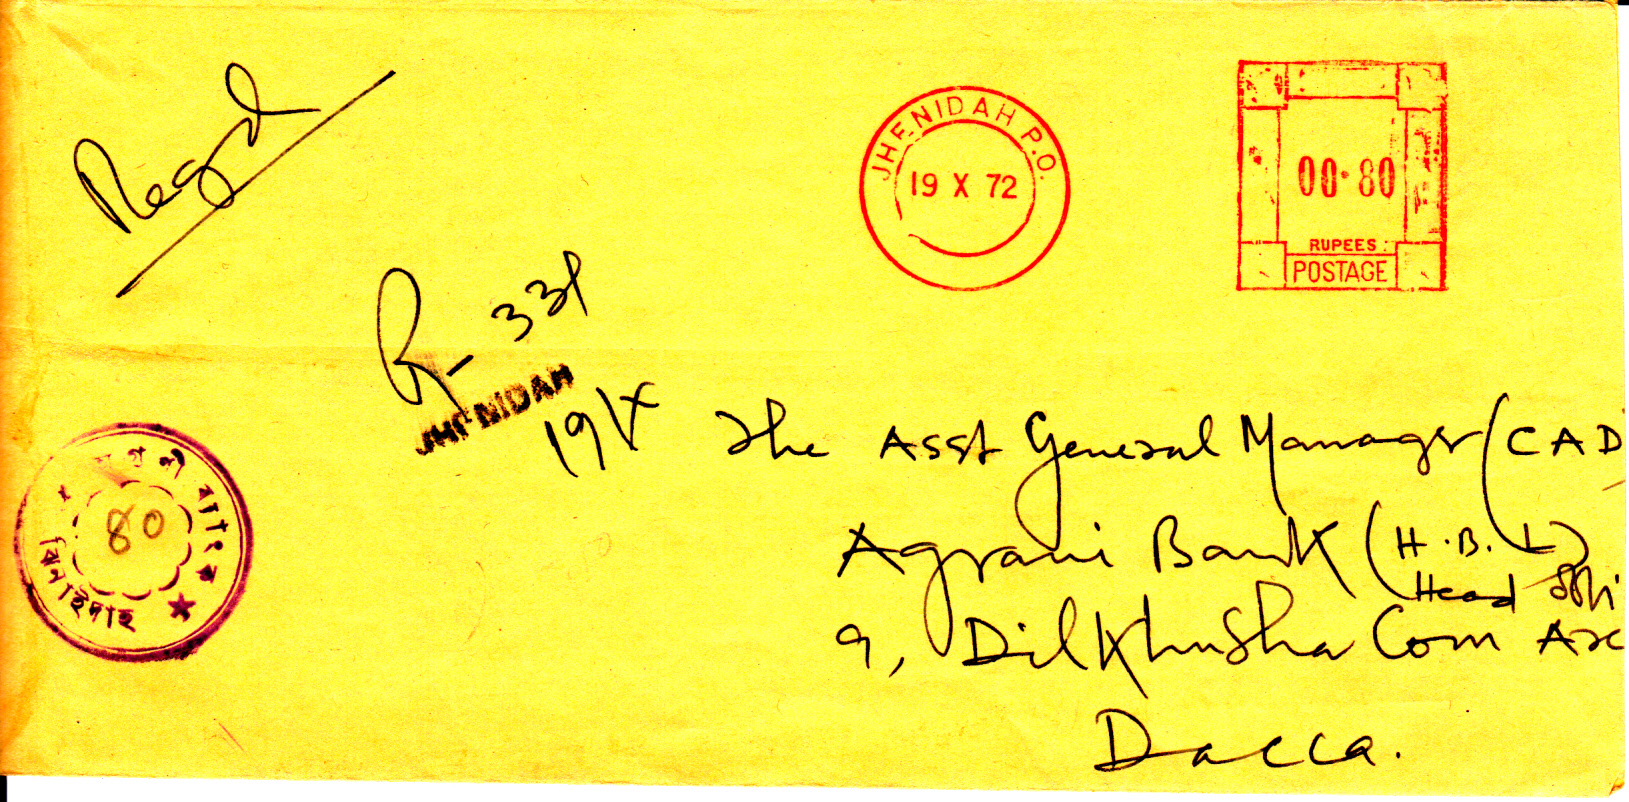 Regd
JHENIDAH P.O.
19 X 72
00·80
RUPEES
POSTAGE
R-331
JHENIDAH
19/X
The Asst General Manager (CAD
Agrani Bank (H.B.L)
Head
9, Dilkhusha Com Are
Dacca.
অগ্রণী ব্যাংক
80
ঝিনাইদহ